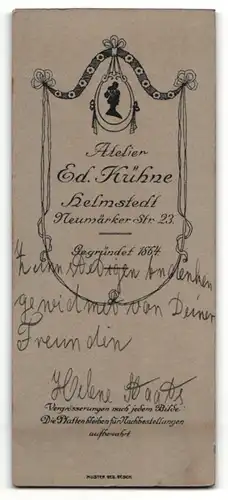 Atelier
Ed. Kühne
Helmstedt
Neumärker Str. 23.
Gegründet 1864
Zum
gewidmet von Deiner
Freundin
Helene
Vergrösserungen nach jedem Bilde.
Die Platten bleiben für Nachbestellungen
aufbewahrt
MUSTER GES. GESCH.